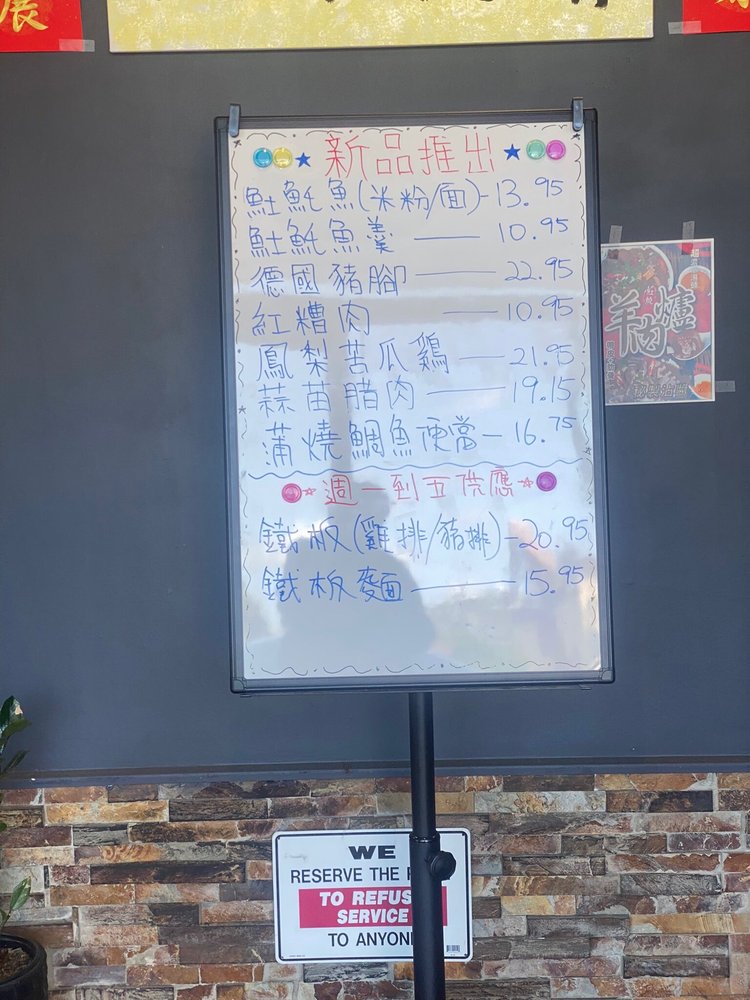 展
新品推出
魠魠魚(米粉/面)-13.95
魠魠魚羹 —— 10.95
德國豬腳 —— 22.95
紅糟肉 —— 10.95
鳳梨苦瓜鷄 —— 21.95
蒜苗腊肉 —— 19.15
蒲燒鯛魚便當 - 16.75
週一到五供應
鐵板(雞排/豬排)-20.95
鐵板麵 —— 15.95
羊肉爐
WE
RESERVE THE
TO REFUS
SERVICE
TO ANYON